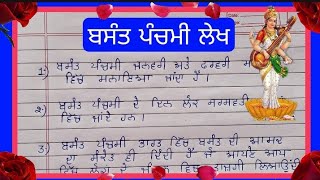 ਬਸੰਤ ਪੰਚਮੀ ਲੇਖ
1) ਬਸੰਤ ਪੰਚਮੀ ਜਨਵਰੀ ਅਤੇ ਫਰਵਰੀ
ਵਿੱਚ ਮਨਾਇਆ ਜਾਂਦਾ ਹੈ।
2) ਬਸੰਤ ਪੰਚਮੀ ਦੇ ਦਿਨ ਲੋਕ ਸਰਸਵਤੀ
ਵਿੱਚ ਜਾਂਦੇ ਹਨ।
3) ਬਸੰਤ ਪੰਚਮੀ ਭਾਰਤ ਵਿੱਚ ਬਸੰਤ ਦੀ ਆਮਦ
ਦਾ ਸੰਕੇਤ ਵੀ ਦਿੰਦੀ ਹੈ ਜੋ ਆਪਣੇ ਆਪ
ਵਿੱਚ ਲੋਕਾਂ ਦੇ ਜੀਵਨ ਵਿੱਚ ਤਾਜ਼ਗੀ ਲਿਆਉਂਦੀ